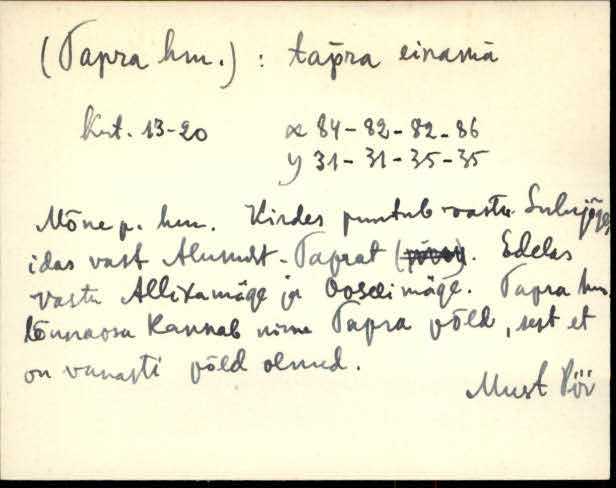 (Tapra hm.) : tap̄ra einamā
Krt. 13-20 x 84-82-82-86
y 31-31-35-35
Mõne p. hm. Kirdes puutub vastu Suhujõge,
idas vast Alumist-Taprat. Edelas
vastu Allixamäge ja Ooseimäge. Tapra hm.
lõunaosa kannab nime Tapra põld, sest et
on vanasti põld olnud.
Must